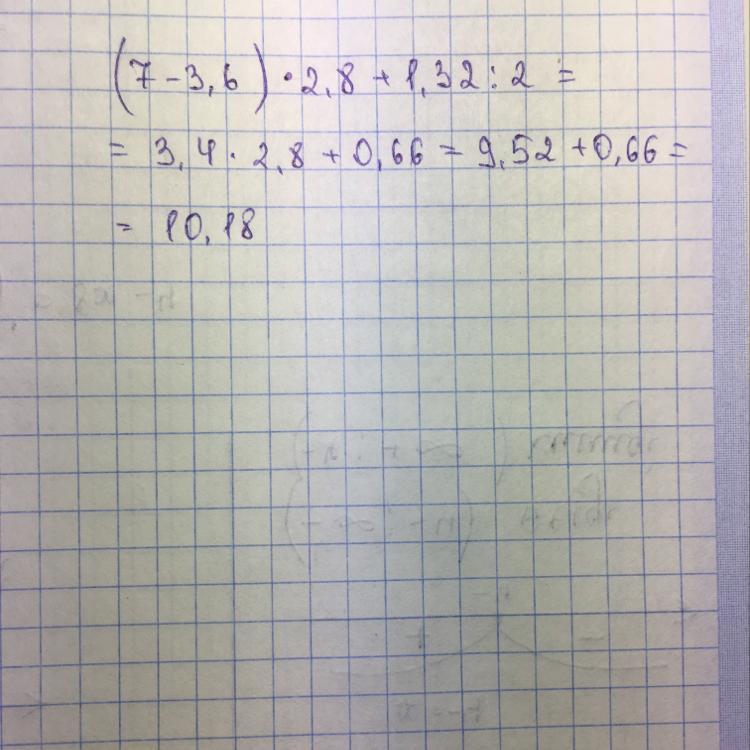 (7 - 3,6) · 2,8 + 1,32 : 2 =
= 3,4 · 2,8 + 0,66 = 9,52 + 0,66 =
= 10,18